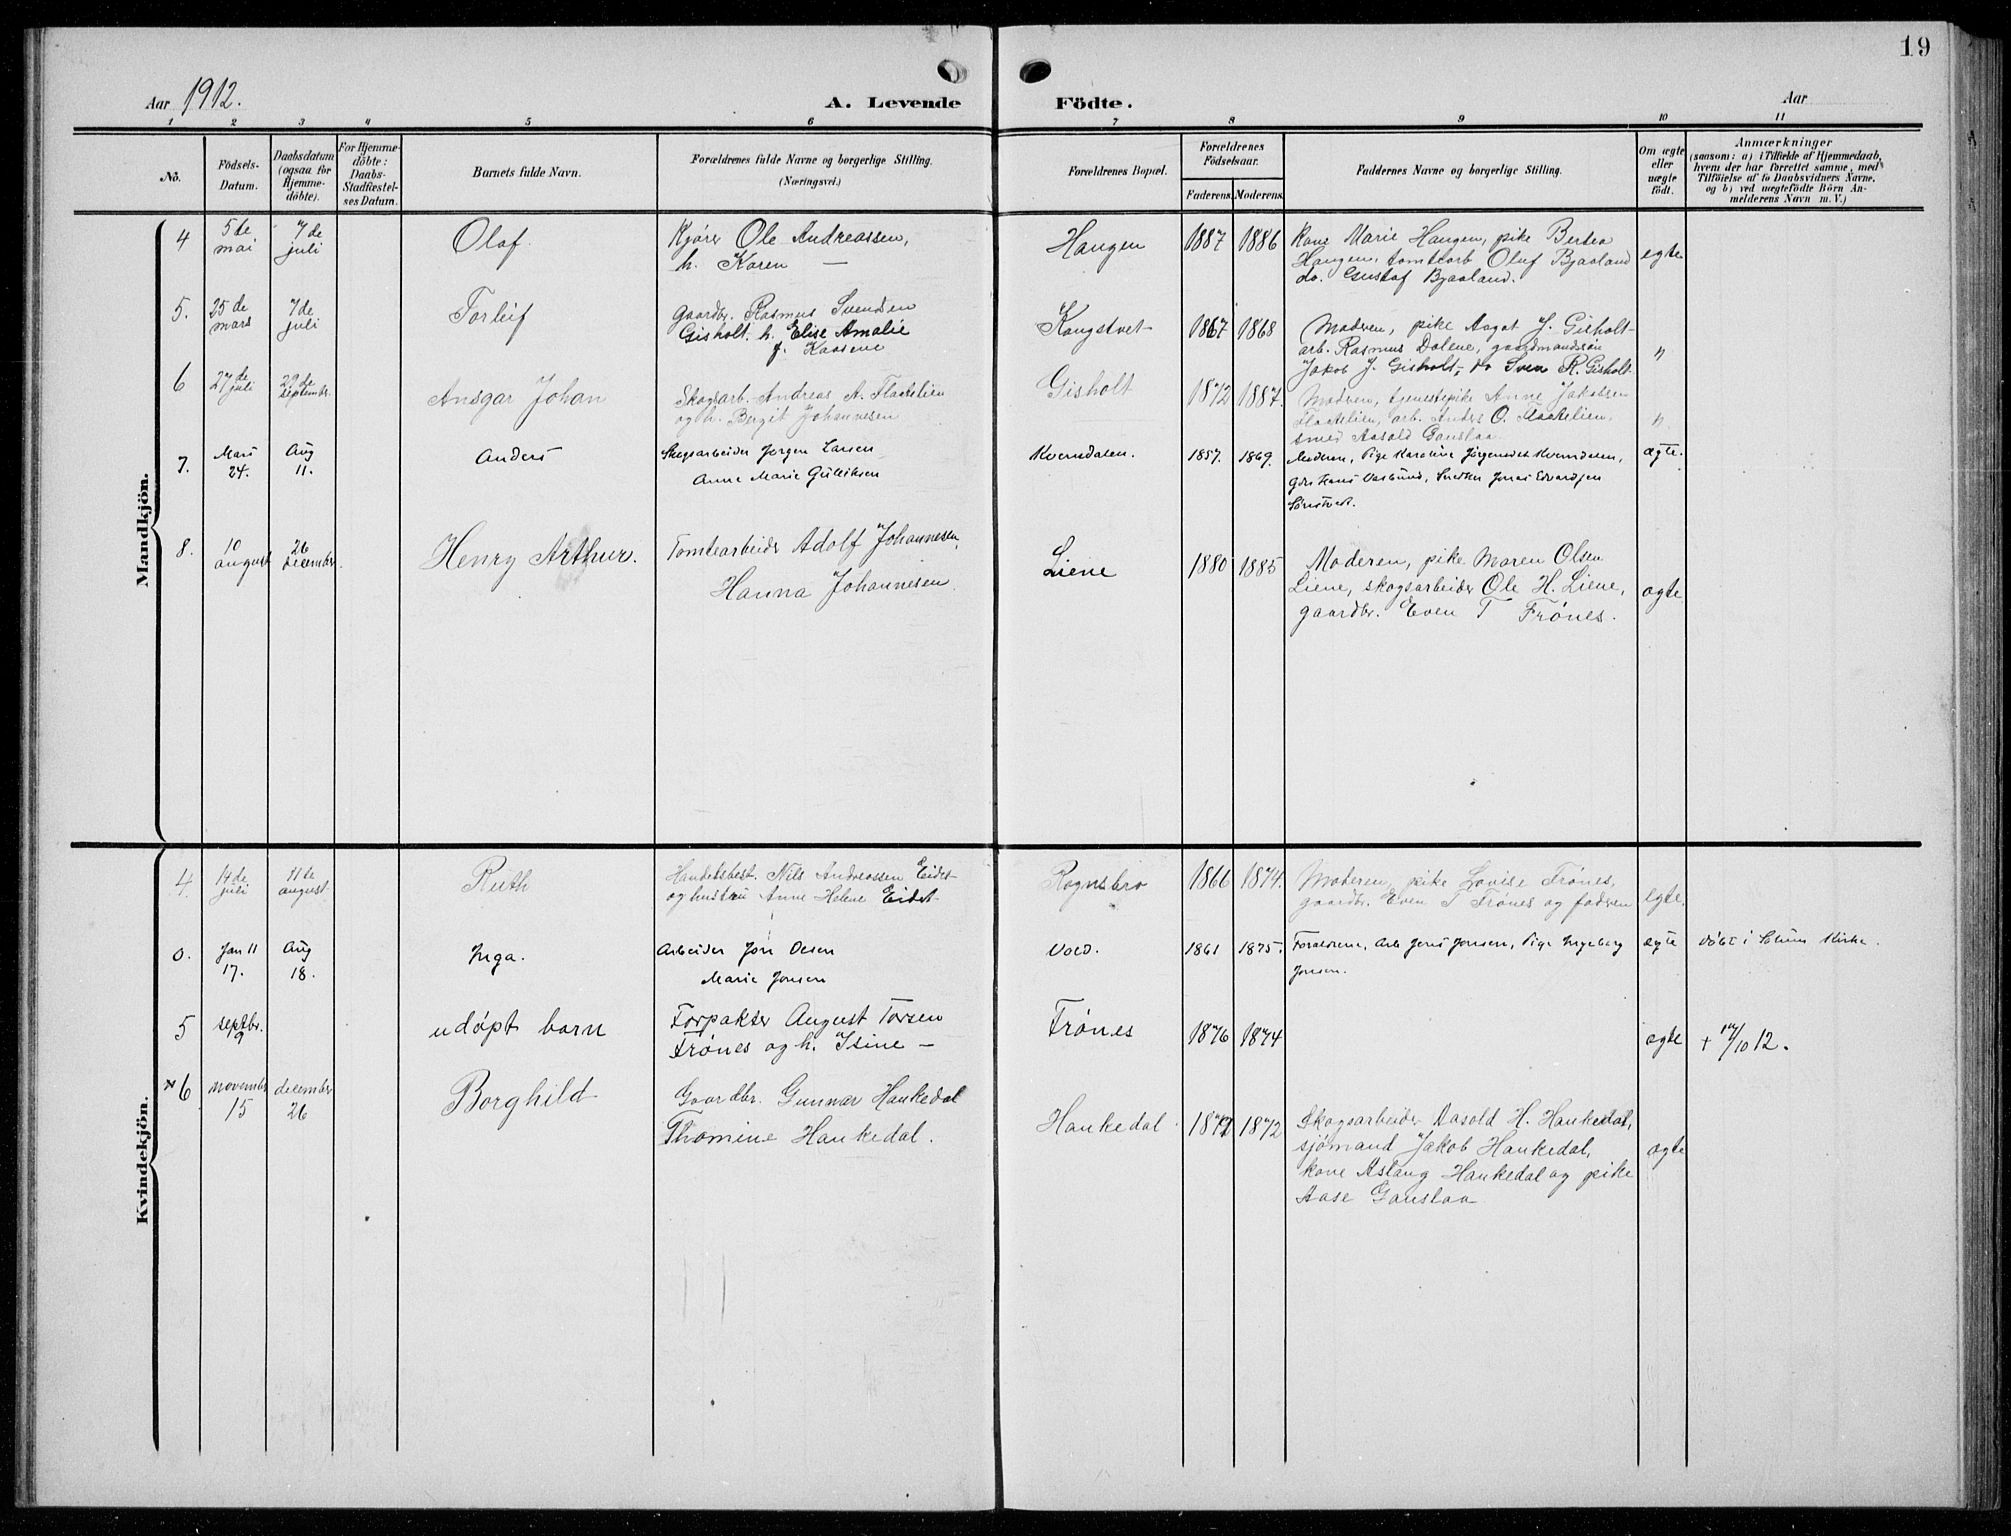 19
Aar 1912.
A. Levende Födte.
Aar
1 2 3 4 5 6 7 8 9 10 11
No.
Födsels-Datum.
Daabsdatum (ogsaa for Hjemmedöbte).
For Hjemmedöbte: Daabs-Stadfæstelses Datum.
Barnets fulde Navn.
Forældrenes fulde Navne og borgerlige Stilling. (Næringsvei.)
Forældrenes Bopæl.
Forældrenes Födselsaar.
Faderens. Moderens.
Faddernes Navne og borgerlige Stilling.
Om ægte eller uægte födt.
Anmærkninger (saasom: a) i Tilfælde af Hjemmedaab, hvem der har forrettet samme, med Tilföielse af to Daabsvidners Navne, og b) ved uægtefödte Börn Anmelderens Navn m. V.)
Mandkjön.
4 5te mai 7de juli Olaf Kjører Ole Andreassen, h. Karen — Haugen 1887 1886 Kone Marie Haugen, pike Bertea
Haugen, tomtearb Oluf Bjaaland egte
do. Gustaf Bjaaland.
5. 25de mars 7de juli Torleif Gaardbr. Rasmus Svendsen
Gisholt. h. Elise Amalie
f. Kaasene
Kongstvet 1867 1868 Moderen, pike Aagot J. Gisholt
arb. Rasmus Dalene, gaardmandssøn "
Jakob J. Gisholt, do Sven R. Gisholt
6 27de juli 29de september Ansgar Johan Skogsarb. Andreas A. Flaatelien
og h. Bergit Johannesen
Gisholt 1872 1887. Moderen, tjenestepike Anne Jakobsen
Flaatelien, arb. Anders O. Flaatelien, "
smed Aasold Gauslaa
7. Mars 24. Aug 11. Anders Skogsarbeider Jørgen Larsen
Anne Marie Gulliksen
Kverndalen. 1857. 1869. Moderen, Pige Karoline Jørgensdt Kverndalen, ægte.
Gbr Hans Vasbund, Snedker Jonas Edvardsen
8. 10 august 26 december Henry Arthur. Tomtearbeider Adolf Johannesen,
Hanna Johannesen.
Liene 1880 1885 Moderen, pike Maren Olsen
Liene, skogsarbeider Ole H. Liene, ægte
gaardbr. Even T Frønes.
Kvindekjön.
4. 14de juli 11te august Ruth Handelsbest. Nils Andreassen Eidet
og hustru Anne Helene Eidet
Rognsbro 1866 1874. Moderen, pike Lovise Frønes,
gaardbr. Even T Frønes og faderen egte.
0. Jan 11 17. Aug 18. Inga. Arbeider Jon Olsen
Marie Jonsen
Vold. 1861 1875. Forældrene, Arb Jens Jonsen, Pige Ingeborg ægte Døbt i Solum Kirke.
Jonsen.
5 septbr. 9 udøpt barn Forpakter August Torsen
Frønes og h. Isine —
Frønes 1876 1874 ægte + 14/10 12.
× 6 november 15 december 26 Borghild Gaardbr. Gunnar Haukedal
Thomine Haukedal.
Haukedal 1872 1872 Skogsarbeider Aasold H. Haukedal,
sjømand Jakob Haukedal,
kone Aslaug Haukedal og pike ægte
Aase Gauslaa